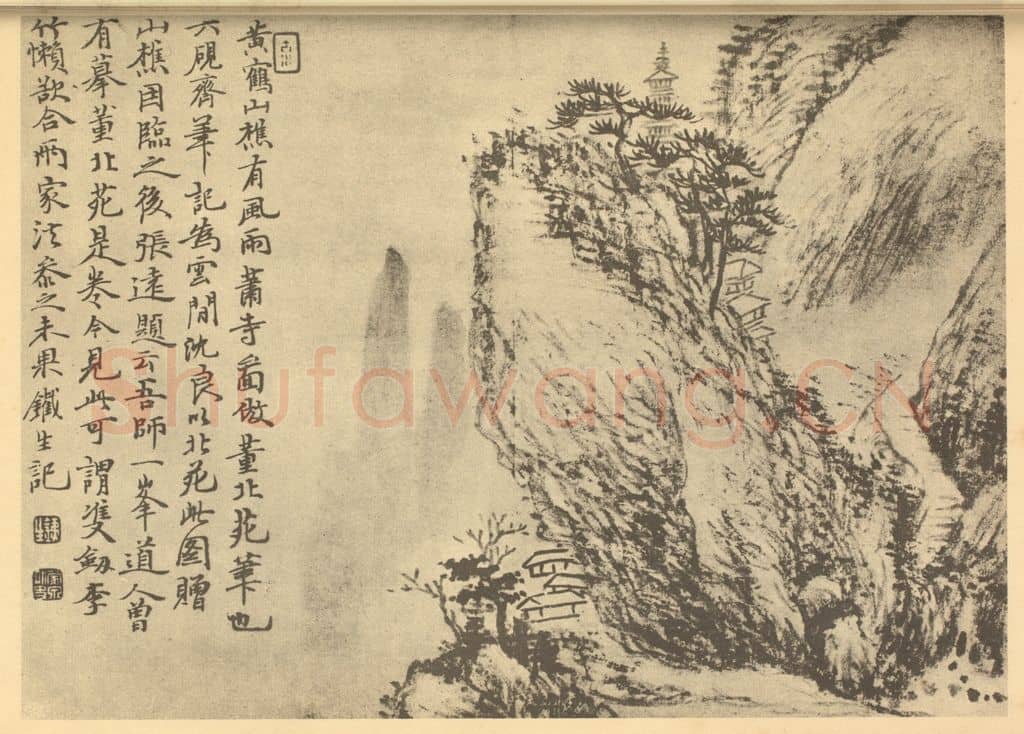 黄鶴山樵有風雨蕭寺圖倣董北苑筆也
六硯齋筆記為雲間沈良以北苑此图贈
山樵因臨之後張遠題云吾師一峯道人曾
有摹董北苑是卷今見此可謂雙劔李
竹懶欲合兩家法叅之未果鐵生記
Shufawang.CN